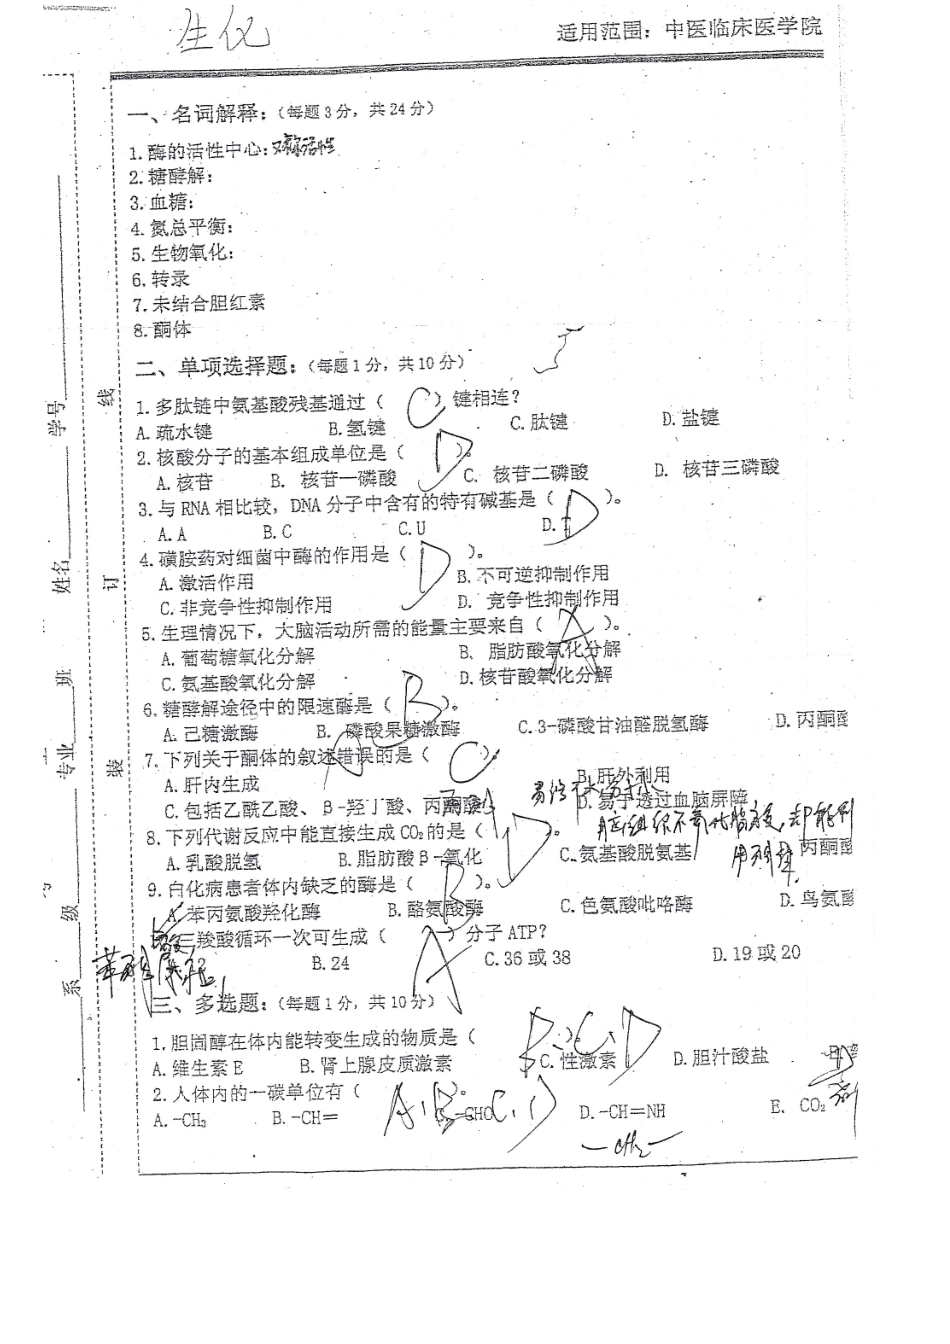 生化
适用范围：中医临床医学院
一、名词解释：（每题3分，共24分）
1.酶的活性中心：
2.糖酵解：
3.血糖：
4.氮总平衡：
5.生物氧化：
6.转录
7.未结合胆红素
8.酮体
二、单项选择题：（每题1分，共10分）
1.多肽链中氨基酸残基通过（ C ）键相连？
A.巯水键 B.氢键 C.肽键 D.盐键
2.核酸分子的基本组成单位是（ D ）。
A.核苷 B. 核苷一磷酸 C. 核苷二磷酸 D. 核苷三磷酸
3.与RNA相比较，DNA分子中含有的特有碱基是（ D ）。
A.A B.C C.U D.T
4.磺胺药对细菌中酶的作用是（ D ）。
A.激活作用 B.不可逆抑制作用
C.非竞争性抑制作用 D. 竞争性抑制作用
5.生理情况下，大脑活动所需的能量主要来自（ A ）。
A.葡萄糖氧化分解 B. 脂肪酸氧化分解
C.氨基酸氧化分解 D.核苷酸氧化分解
6.糖酵解途径中的限速酶是（ B ）。
A.己糖激酶 B. 磷酸果糖激酶 C.3-磷酸甘油醛脱氢酶 D.丙酮酸
7.下列关于酮体的叙述错误的是（ C ）。
A.肝内生成 B.肝外利用
C.包括乙酰乙酸、β-羟丁酸、丙酮酸 D.易于透过血脑屏障
8.下列代谢反应中能直接生成CO₂的是（ D ）。
A.乳酸脱氢 B.脂肪酸β-氧化 C.氨基酸脱氨基 丙酮酸
9.白化病患者体内缺乏的酶是（ B ）。
A.苯丙氨酸羟化酶 B.酪氨酸酶 C.色氨酸吡咯酶 D.鸟氨酸
三羧酸循环一次可生成（ A ）分子ATP？
12 B.24 C.36或38 D.19或20
三、多选题：（每题1分，共10分）
1.胆固醇在体内能转变生成的物质是（ B C D
A.维生素E B.肾上腺皮质激素 C.性激素 D.胆汁酸盐
2.人体内的一碳单位有（ A B C D ）。
A.-CH₃ B.-CH= -CHO D.-CH=NH E. CO₂
-CH₂-
学号
姓名
班
专业
级
系
线
订
装